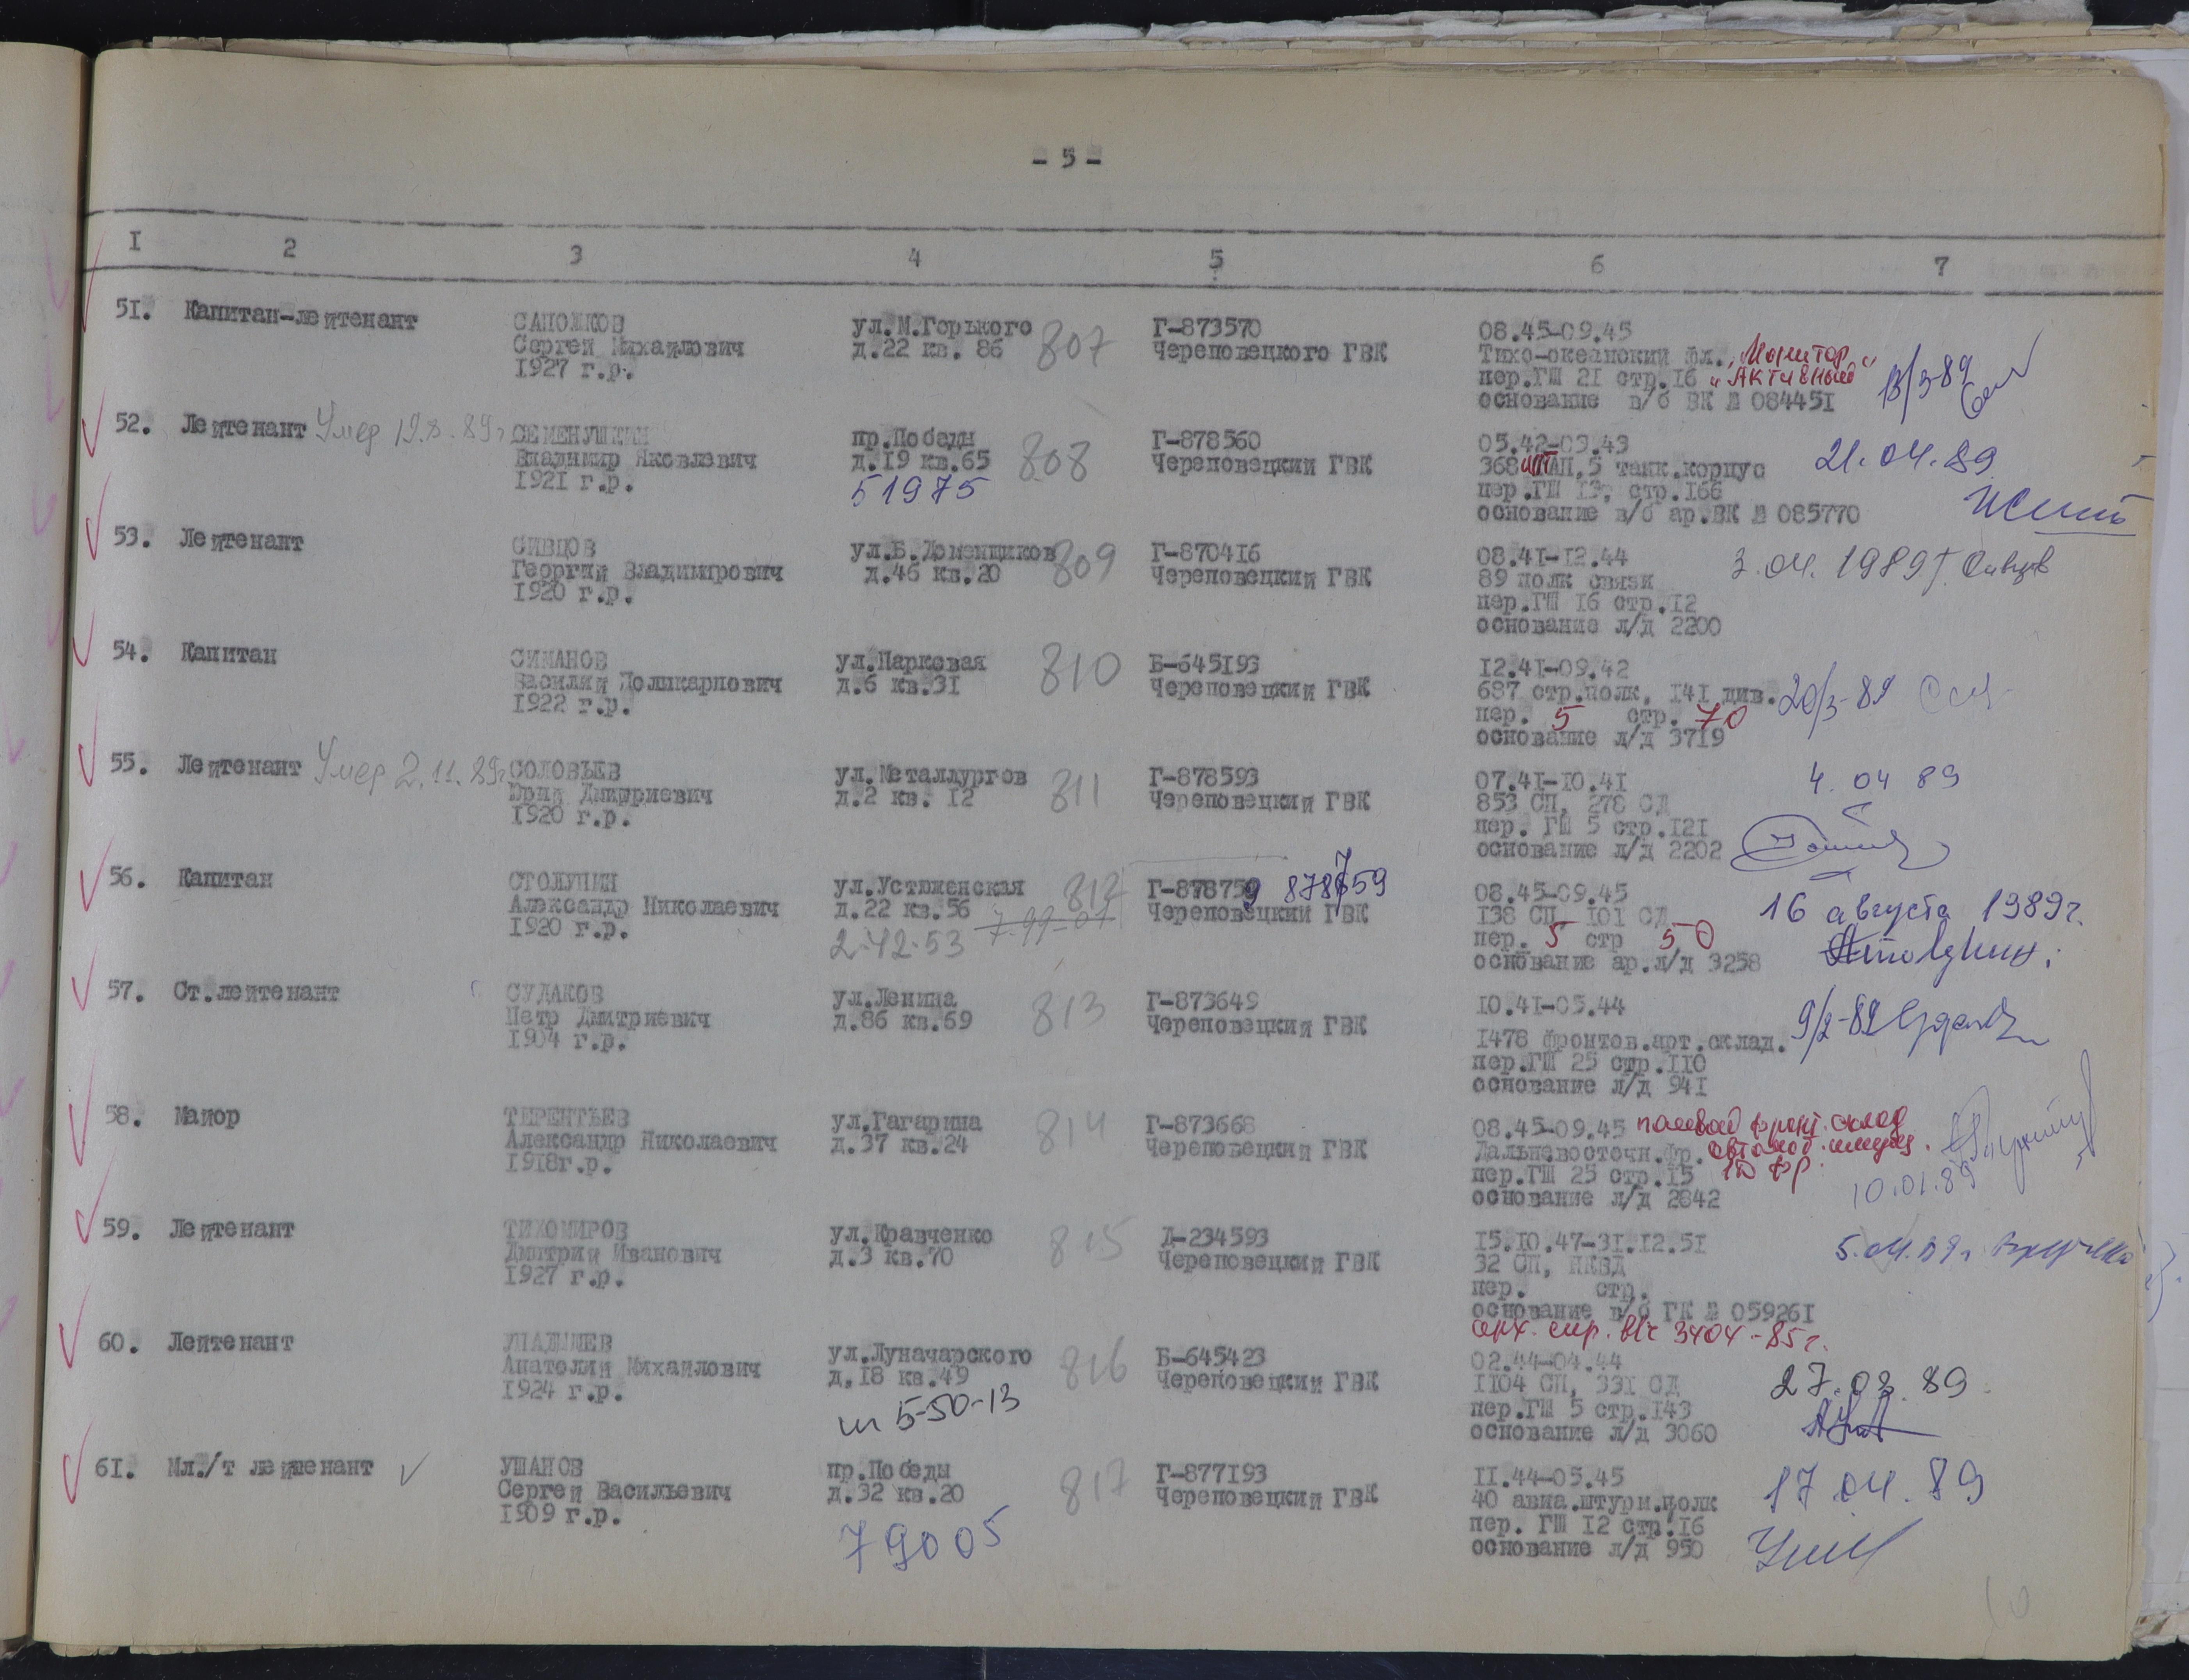 - 5 -
I 2 3 4 5 6 7
51. Капитан-лейтенант САПОЖКОВ ул.М.Горького 807 Г-873570 08.45-09.45
Сергей Михайлович д.22 кв. 86 Череповецкого ГВК Тихо-океанский фл., Монитор
1927 г.р. пер.ГШ 21 стр.16 "Активный" 13/3-89
основание в/б ВК № 084451
52. Лейтенант Умер 19.8.89г СЕМЕНУШКИН пр.Победы 808 Г-878560 05.42-09.43
Владимир Яковлевич д.19 кв.65 Череповецкий ГВК 368 АП,5 танк.корпус 21.04.89
1921 г.р. 51975 пер.ГШ стр.166
основание в/б ар.ВК № 085770
53. Лейтенант СИВЦОВ ул.Б.Доменщиков 809 Г-870416 08.41-12.44 3.04.1989г. Сивцов
Георгий Владимирович д.46 кв.20 Череповецкий ГВК 89 полк связи
1920 г.р. пер.ГШ 16 стр.12
основание л/д 2200
54. Капитан СИМАНОВ ул.Парковая 810 Б-645193 12.41-09.42
Василий Поликарпович д.6 кв.31 Череповецкий ГВК 687 стр.полк, 141 див. 20/3-89
1922 г.р. пер. 5 стр. 70
основание л/д 3719
55. Лейтенант Умер 2.11.89г СОЛОВЬЕВ ул.Металлургов 811 Г-878593 07.41-10.41 4.04 89
Юрий Дмитриевич д.2 кв. 12 Череповецкий ГВК 853 СП, 278 СД
1920 г.р. пер. ГШ 5 стр.121
основание л/д 2202
56. Капитан СТОЛУПИН ул.Устюженская 812 Г-878759 878759 08.45-09.45
Александр Николаевич д.22 кв.56 7-99-07 Череповецкий ГВК 138 СП, 101 СД 16 августа 1989г.
1920 г.р. 2-42-53 пер. 5 стр 50
основание ар.л/д 3258 Столупин
57. Ст.лейтенант СУДАКОВ ул.Ленина 813 Г-873649 10.41-05.44
Петр Дмитриевич д.86 кв.69 Череповецкий ГВК 1478 фронтов.арт.склад. 9/2-89 Судаков
1904 г.р. пер.ГШ 25 стр.110
основание л/д 941
58. Майор ТЕРЕНТЬЕВ ул.Гагарина 814 Г-873668 08.45-09.45 полевой фронт. склад
Александр Николаевич д.37 кв.24 Череповецкий ГВК Дальневосточн.фр. автомоб. имущ.
1918г.р. пер.ГШ 25 стр.15 1D фр.
основание л/д 2842 10.01.89
59. Лейтенант ТИХОМИРОВ ул.Кравченко 815 Д-234593 15.10.47-31.12.51 5.04.89г
Дмитрий Иванович д.3 кв.70 Череповецкий ГВК 32 СП, НКВД
1927 г.р. пер. стр.
основание в/б ГК № 059261
арх. спр. в/ч 3404-85г.
60. Лейтенант УПАДЫШЕВ ул.Луначарского 816 Б-645423 02.44-04.44
Анатолий Михайлович д.18 кв.49 Череповецкий ГВК 1104 СП, 331 СД 27.03.89
1924 г.р. 5-50-13 пер.ГШ 5 стр.143
основание л/д 3060
61. Мл./т лейтенант УШАНОВ пр.Победы 817 Г-877193 11.44-05.45
Сергей Васильевич д.32 кв.20 Череповецкий ГВК 40 авиа.штурм.полк 17.04.89
1909 г.р. 79005 пер. ГШ 12 стр.16
основание л/д 950